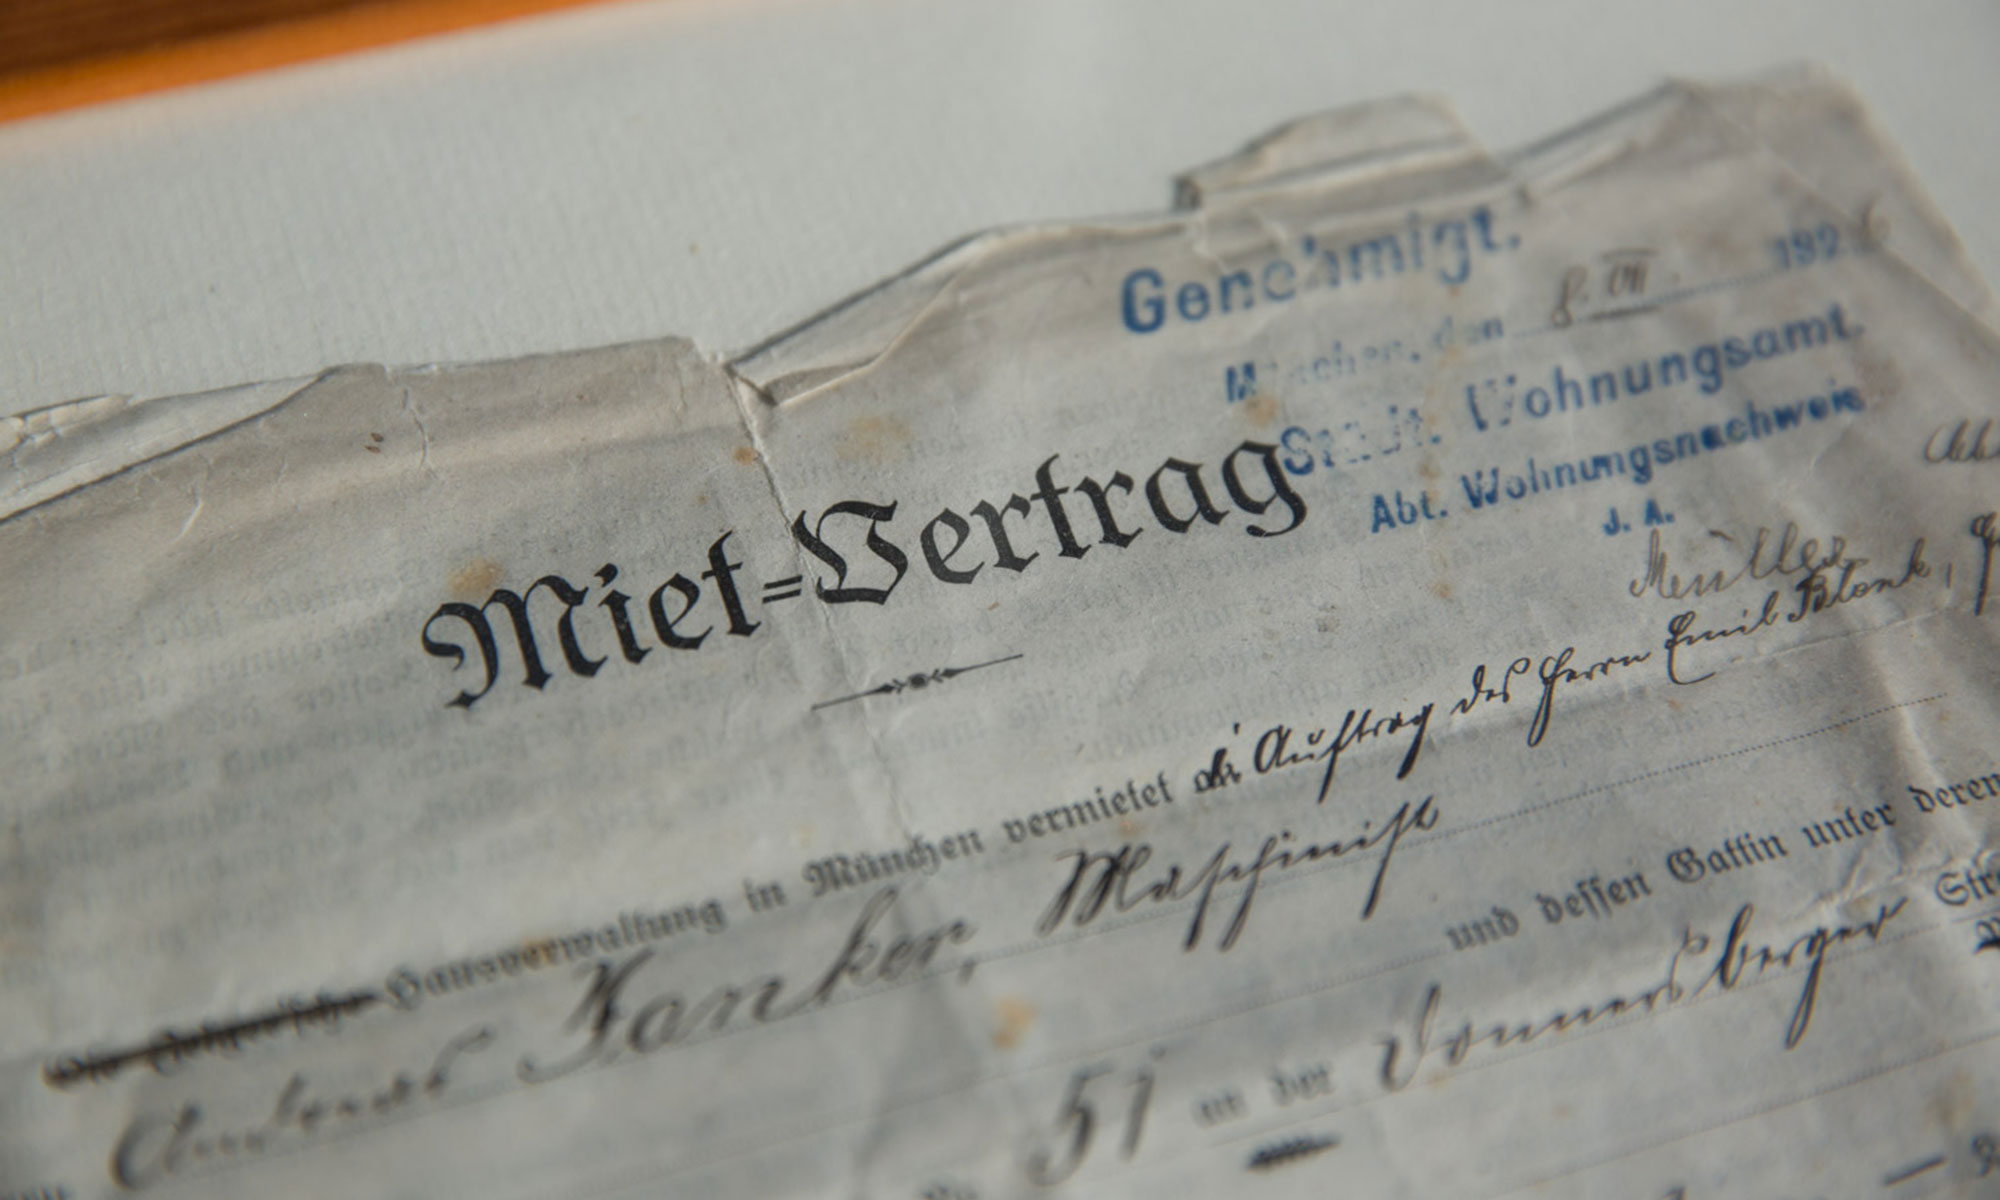 Genehmigt.
München, den 8. VII. 192
Städt. Wohnungsamt.
Abt. Wohnungsnachweis
J. A.
Müller
Miet=Vertrag
Hausverwaltung in München vermietet Auftrag des Herrn Emil Blank,
Andreas Janker, Maschinist und dessen Gattin unter deren
51 an der Donnersberger Str